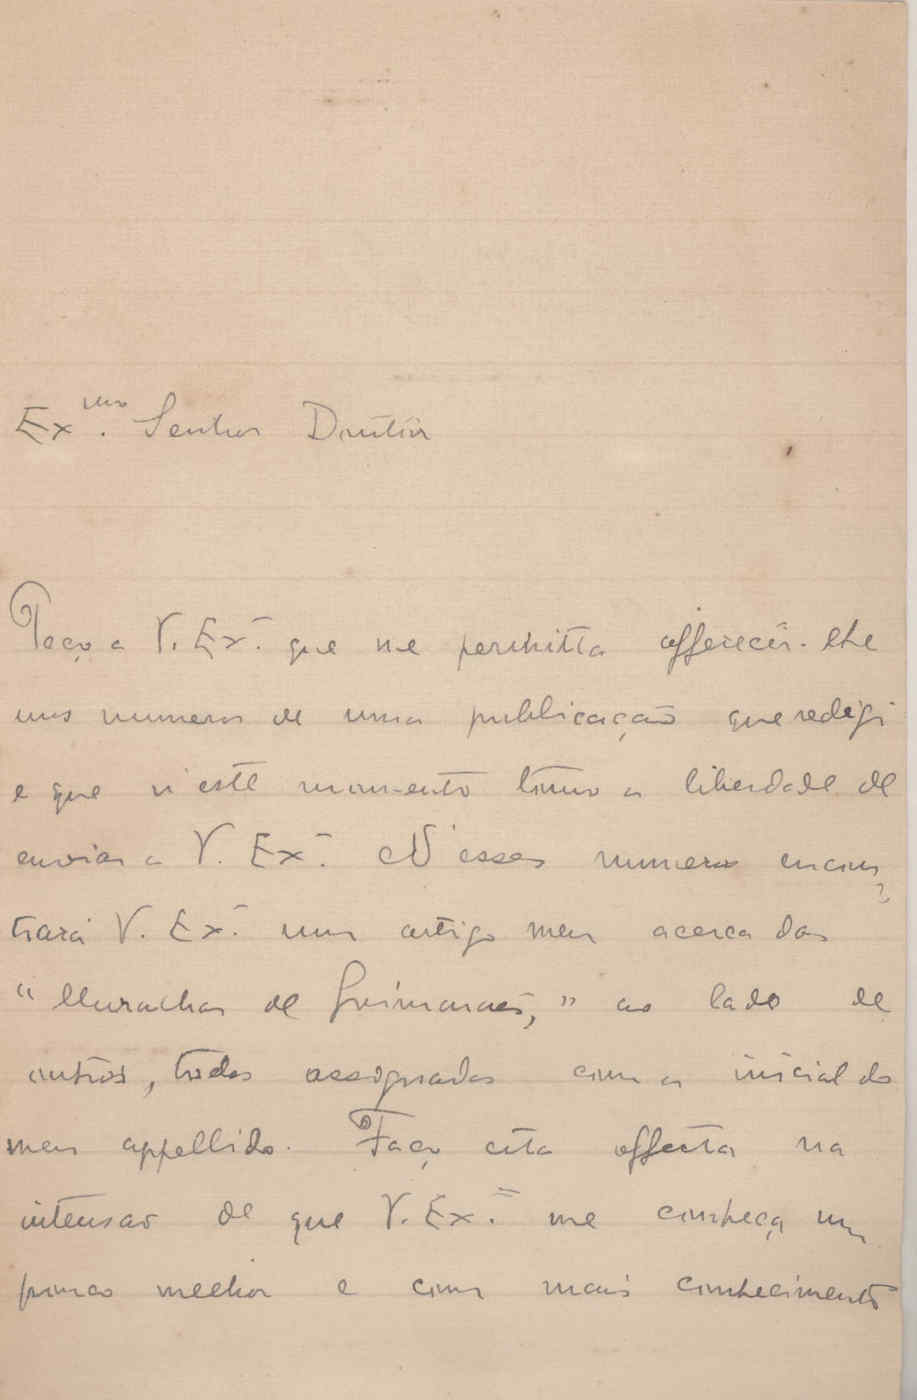 Ex.mo Senhor Doutor
Peço a V. Ex.ª que me permitta offerecer-lhe
uns numeros de uma publicação que redegi
e que n'este momento tomo a liberdade de
enviar a V. Ex.ª N'esses numeros encon-
trará V. Ex.ª um artigo meu acerca das
"Muralhas de Guimaraes," ao lado de
outros, todos assignados com a inicial do
meu appellido. Faço esta offerta na
intensão de que V. Ex.ª me conheça um
pouco melhor e com mais conhecimento